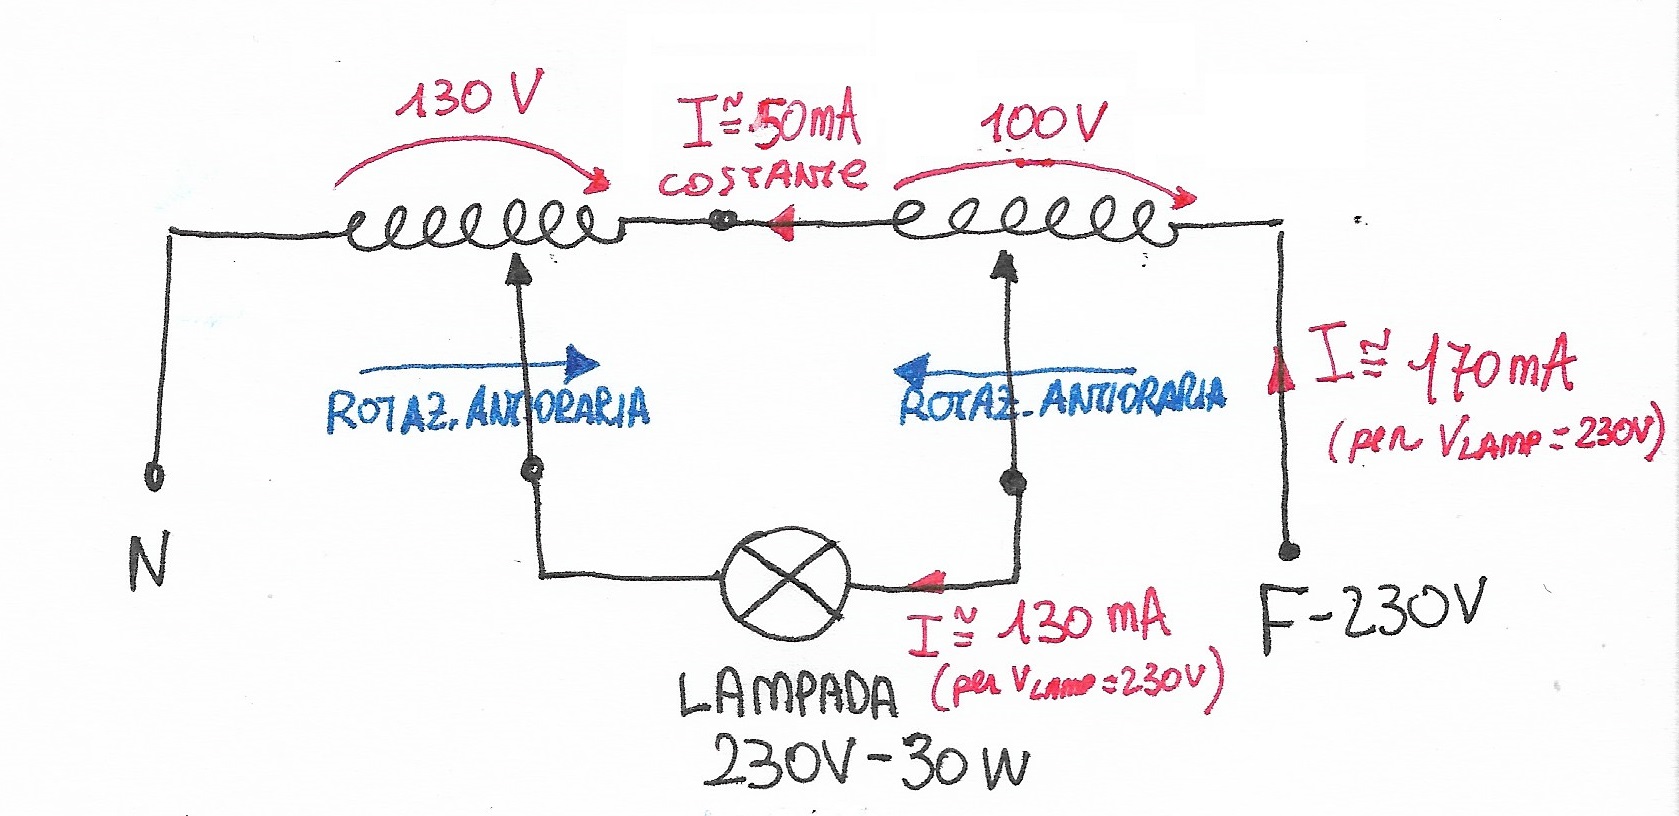 130 V
I≅50mA
COSTANTE
100V
ROTAZ. ANTIORARIA
ROTAZ. ANTIORARIA
I≅170mA
(per VLAMP=230V)
N
F-230V
I≅130mA
(per VLAMP=230V)
LAMPADA
230V-30W